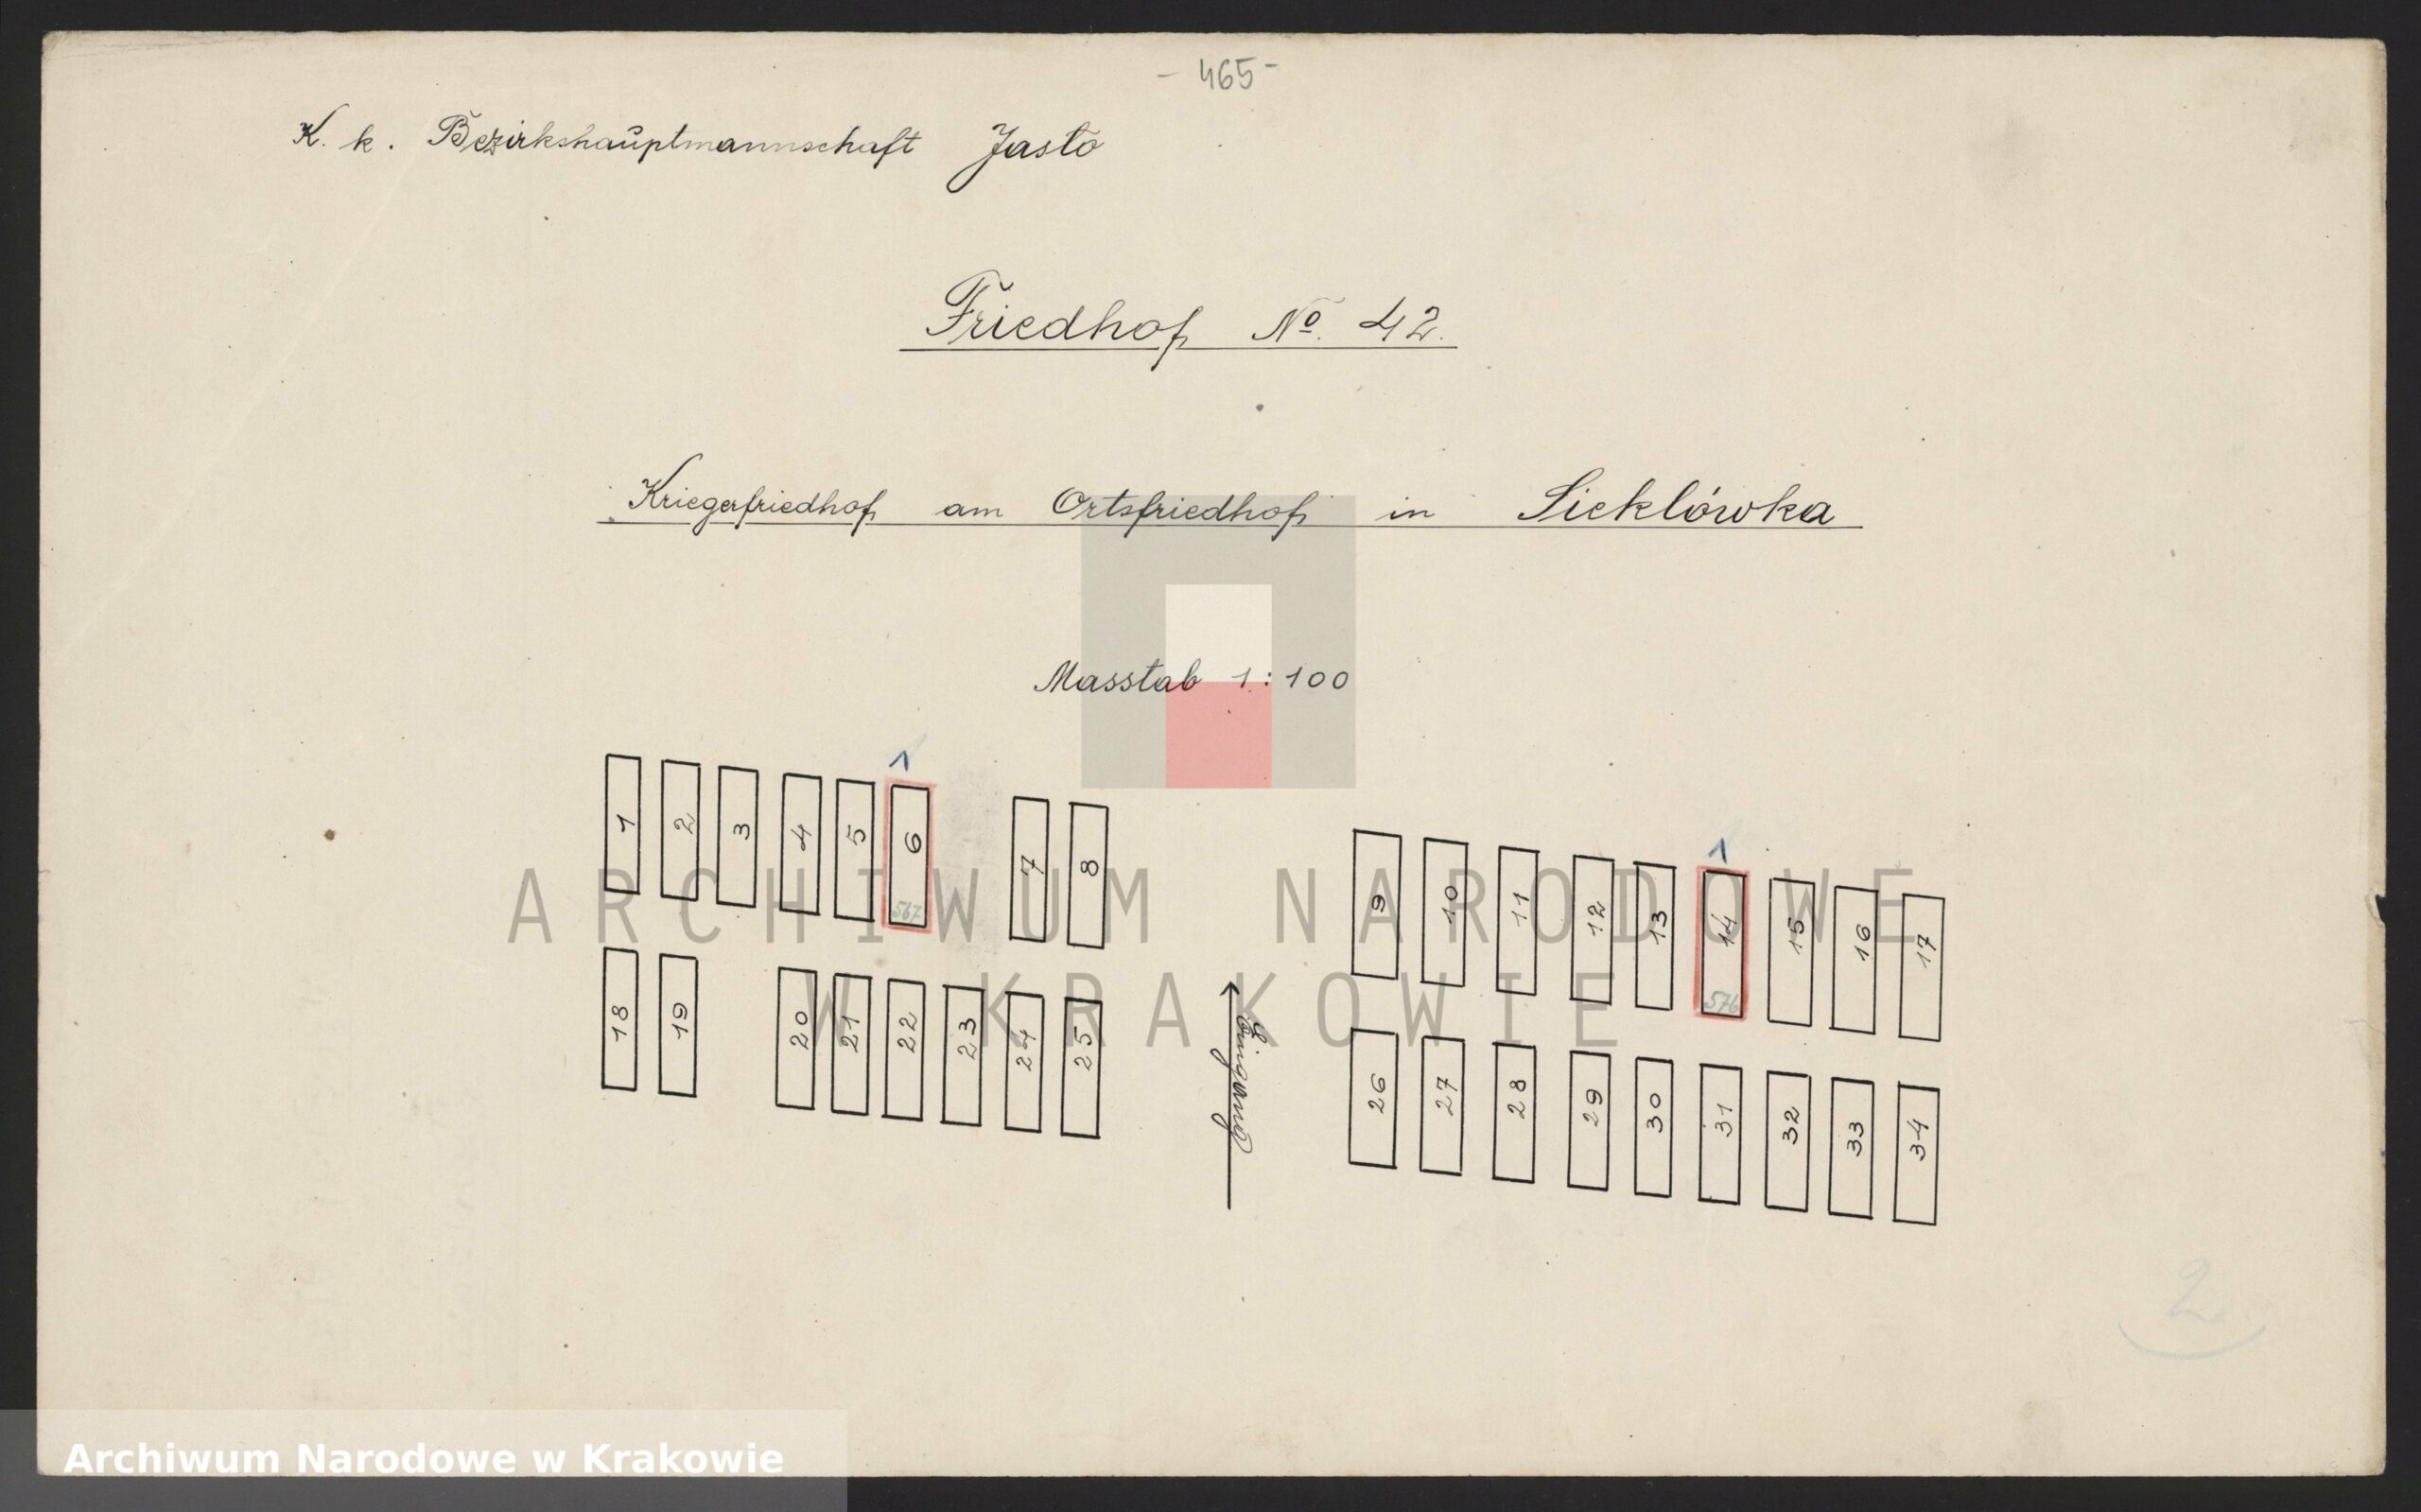 - 465 -
K. k. Bezirkshauptmannschaft Jasło
Friedhof No. 42.
Kriegerfriedhof am Ortsfriedhof in Sieklówka
Masstab 1:100
1
1
1 2 3 4 5 6 7 8 9 10 11 12 13 14 15 16 17
567
576
18 19 20 21 22 23 24 25 26 27 28 29 30 31 32 33 34
Eingang
2
ARCHIWUM NARODOWE
W KRAKOWIE
Archiwum Narodowe w Krakowie